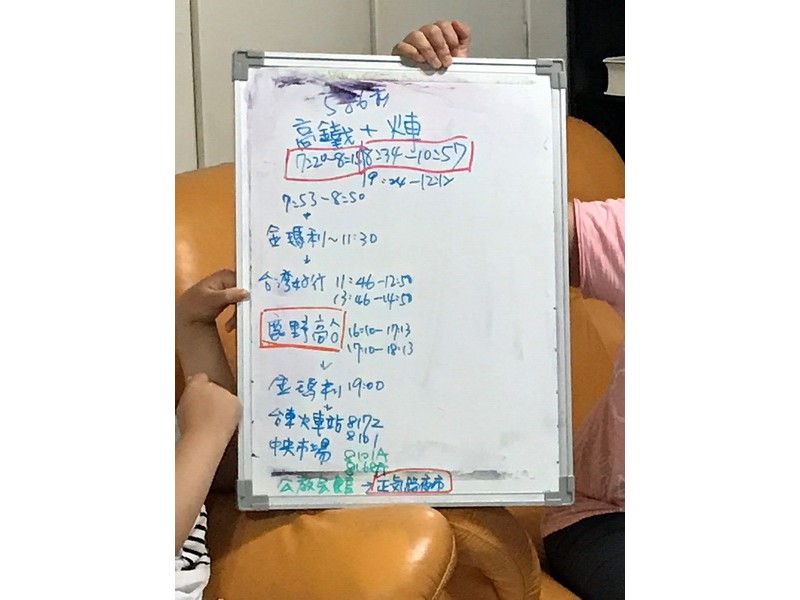 高鐵+火車
7:20-8:15 8:34-10:57
19:24-12:12
7:53-8:50
金瑪利~11:30
台湾好行 11:46-12:50
13:46-14:50
鹿野高台 16:10-17:13
17:10-18:13
金瑪利 19:00
台東火車站 8172
8161
中央市場
8101A
8168A
公教会館→正気路夜市